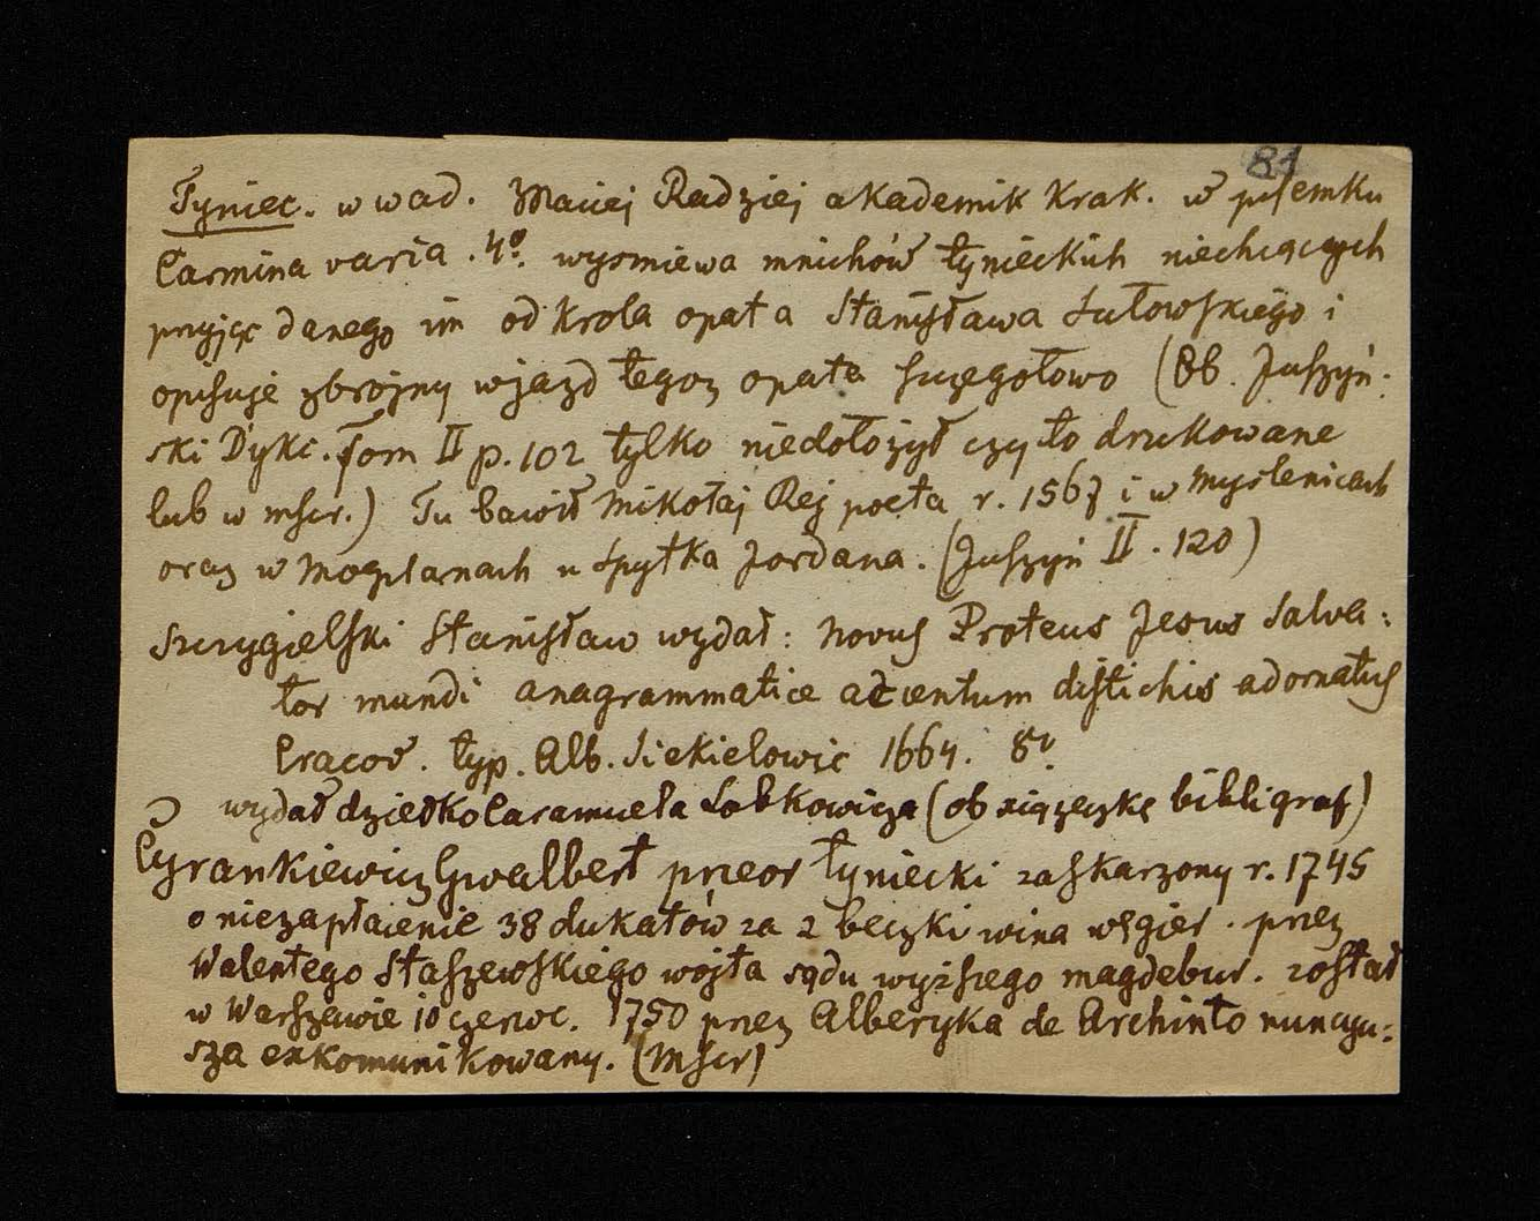 81
Tyniec. w wad. Maciej Radziej akademik Krak. w pisemku
Carmina varia. 4º. wysmiewa mnichów tynieckich niechcących
przyjąc danego im od Krola opata Stanisława Sułowskiego i
opisuje zbrojny wjazd tegoz opata szczegołowo (Ob. Juszyń:
ski Dykc. Tom II p. 102 tylko niedołożył czy to drukowane
lub w mscr.) Tu bawił Mikołaj Rej poeta r. 1567 i w Myslenicach
oraz w Mogilanach u Spytka Jordana. (Juszyń II. 120)
Szczygielski Stanisław wydał: Novus Proteus Jesus Salva:
tor mundi anagrammatice ac centum distichis adornatus
Cracov. typ. Alb. Siekielowic 1664. 8v.
wydał dziełko Caramuela Lobkowicza (ob książeczkę bibligraf)
Cyrankiewicz Gwalbert przeor tyniecki zaskarzony r. 1745
o niezapłacenie 38 dukatów za 2 beczki wina węgier. przez
Walentego Staszewskiego wojta sądu wyższego magdebur. został
w Warszawie 10 czerwc. 1750 przez Alberyka de Archinto nuncyu:
sza exkomunikowany. (Mscr)